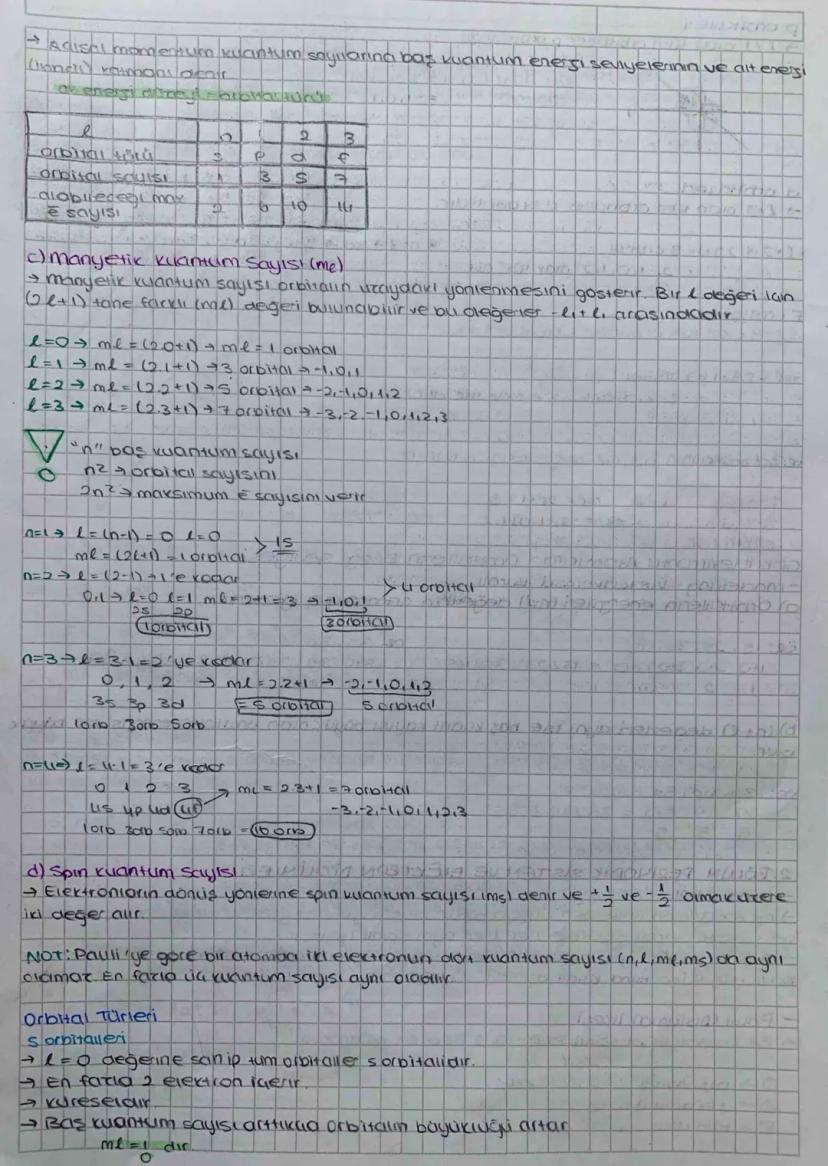 → Açısal momentum kuantum sayılarına baş kuantum enerji seviyelerinin ve alt enerji
(kancı) katmanı denir
alt enerji düzeyi = orbital türü
l 0 1 2 3
orbital türü s p d f
orbital sayısı 1 3 5 7
alabileceği max
ē sayısı 2 6 10 14
c) manyetik kuantum sayısı (ml)
→ manyetik kuantum sayısı orbitalin uzaydaki yönlenmesini gösterir. Bir l değeri için
(2l+1) tane farklı (ml) değeri bulunabilir ve bu değerler -l, +l, arasındadır
l=0 → ml = (2.0+1) → ml = 1 orbital
l=1 → ml = (2.1+1) → 3 orbital → -1,0,1
l=2 → ml = (2.2+1) → 5 orbital → -2,-1,0,1,2
l=3 → ml = (2.3+1) → 7 orbital → -3,-2,-1,0,1,2,3
"n" baş kuantum sayısı
n² → orbital sayısını
2n² → maksimum ē sayısını verir
n=1 → l = (n-1) = 0 l=0
ml = (2l+1) = 1 orbital > 1s
n=2 → l = (2-1) → 1'e kadar
0,1 → l=0 l=1 ml = 2+1 = 3 → -1,0,1 > 4 orbital
2s 2p
1 orbital 3 orbital
n=3 → l = 3-1 = 2'ye kadar
0, 1, 2 → ml = 2.2+1 → -2,-1,0,1,2
3s 3p 3d = 5 orbital 5 orbital
1orb 3orb 5orb
n=4 → l = 4-1 = 3'e kadar
0 1 2 3 → ml = 2.3+1 = 7 orbital
4s 4p 4d 4f -3,-2,-1,0,1,2,3
1orb 3orb 5orb 7orb = 16 orb
d) Spin kuantum sayısı
→ Elektronların dönüş yönlerine spin kuantum sayısı (ms) denir ve +1/2 ve -1/2 olmak üzere
iki değer alır.
NOT: Pauli'ye göre bir atomda iki elektronun dört kuantum sayısı (n,l,ml,ms) da aynı
olamaz. En fazla üç kuantum sayısı aynı olabilir.
Orbital Türleri
s orbitalleri
→ l=0 değerine sahip tüm orbitaller s orbitalidir.
→ En fazla 2 elektron içerir.
→ küreseldir.
→ Baş kuantum sayısı arttıkça orbitalin büyüklüğü artar
ml = 1/0 dır